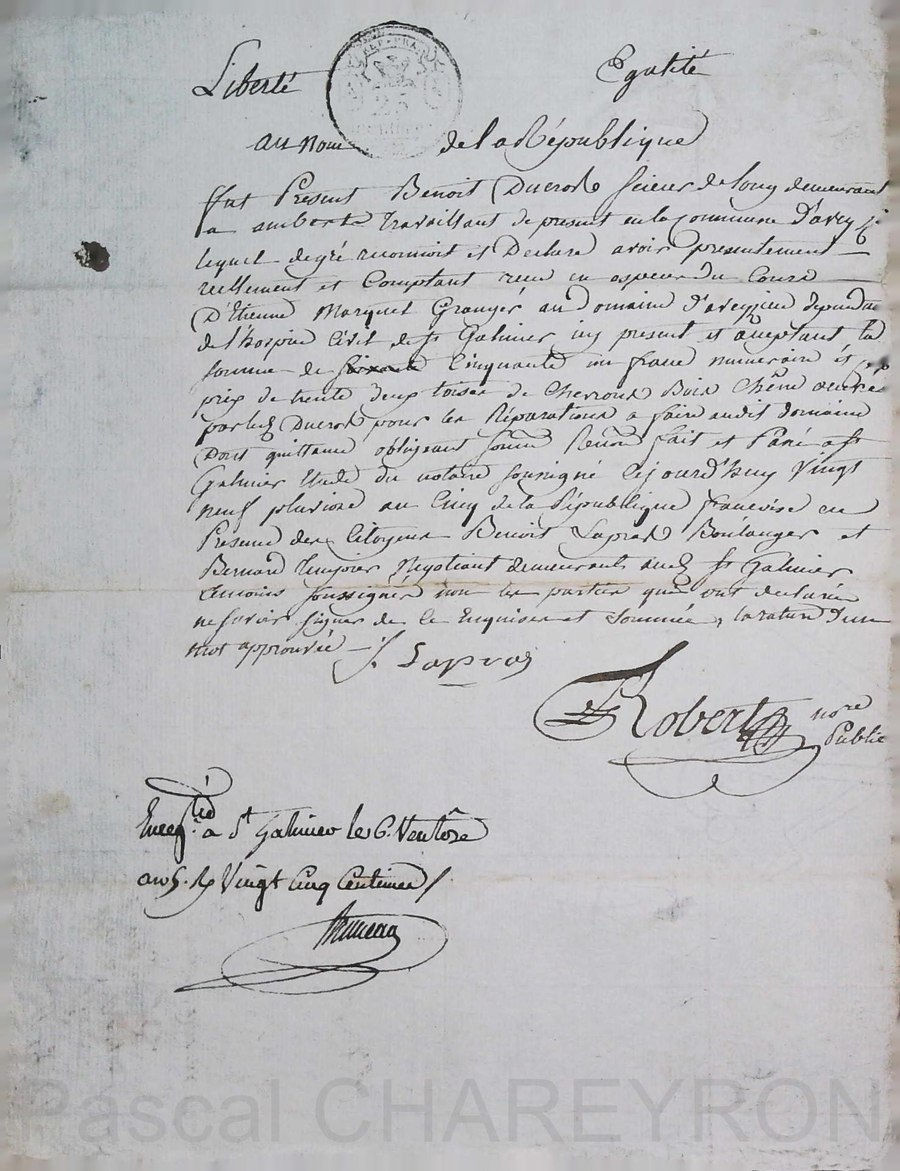 Liberté Egalité
au nom de la République
fut Présent Benoit Ducros Scieur de long demeurant
a ambert travaillant de present en la Commune D'avey
lequel de gré reconnoit et Declare avoir presentement
reellement et Comptant receu en especes du Cours
D'Etienne Marquet Granger au Domaine D'aveyzieu dependant
de l'hospice Civil de St Galmier icy present et acceptant la
somme de Cinquante un franc numeraire
prix de trente deux toises de Chevrons Bois Chêne
par led Ducros pour les Réparations a faire audit domaine
Dont quittance obligeant soum Renon fait et Passé a St
Galmier Etude du notaire soussigné Cejourd'huy Vingt
neuf pluviose an Cinq de la République francoise en
Presence des Citoyens Benoit Lapras Boulanger et
Bernard Negotiant demeurants aud St Galmier
temoins soussignés non les parties qui ont declarée
ne savoir signer de ce Enquises et Sommée, la rature d'un
mot approuvée
Lapras
Robert nore
Public
Enregtré a St Galmier le 6 Ventôse
an 5. R Vingt Cinq Centimes